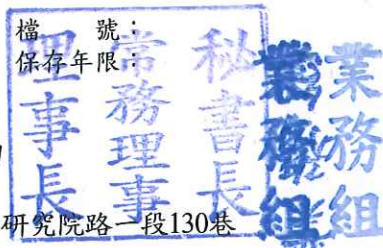 檔　　號：
保存年限：
理事長
常務理事
秘書長
業務組
業務組
研究院路一段130巷